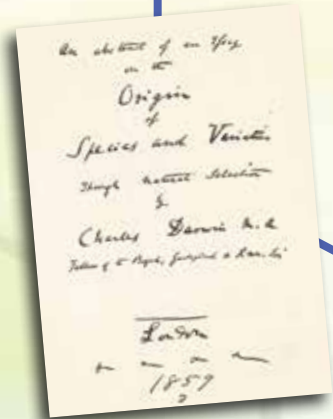 An abstract of an Essay
on the
Origin
of
Species and Varieties
Through natural selection
by
Charles Darwin M.A
Fellow of the Royal, Geological & Linn. Soc
London
1859